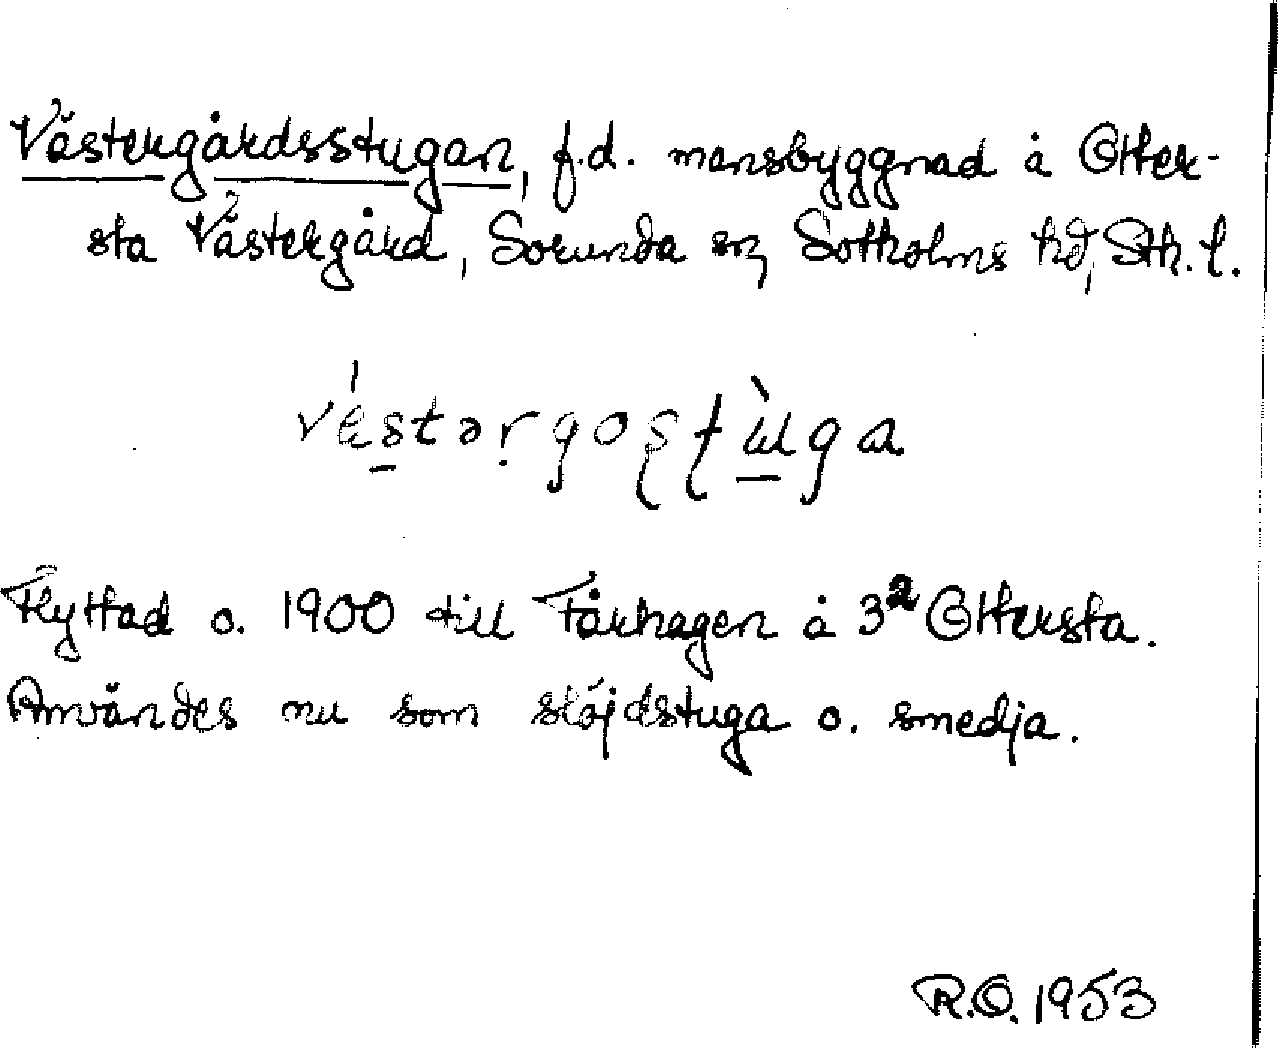 Västergårdsstugan, f.d. mansbyggnad å Otter-
sta Västergård, Sorunda sn, Sotholms hd, Sth. l.
Flyttad o. 1900 till Fårhagen å 3ª Ottersta.
Användes nu som slöjdstuga o. smedja.
R.O. 1953